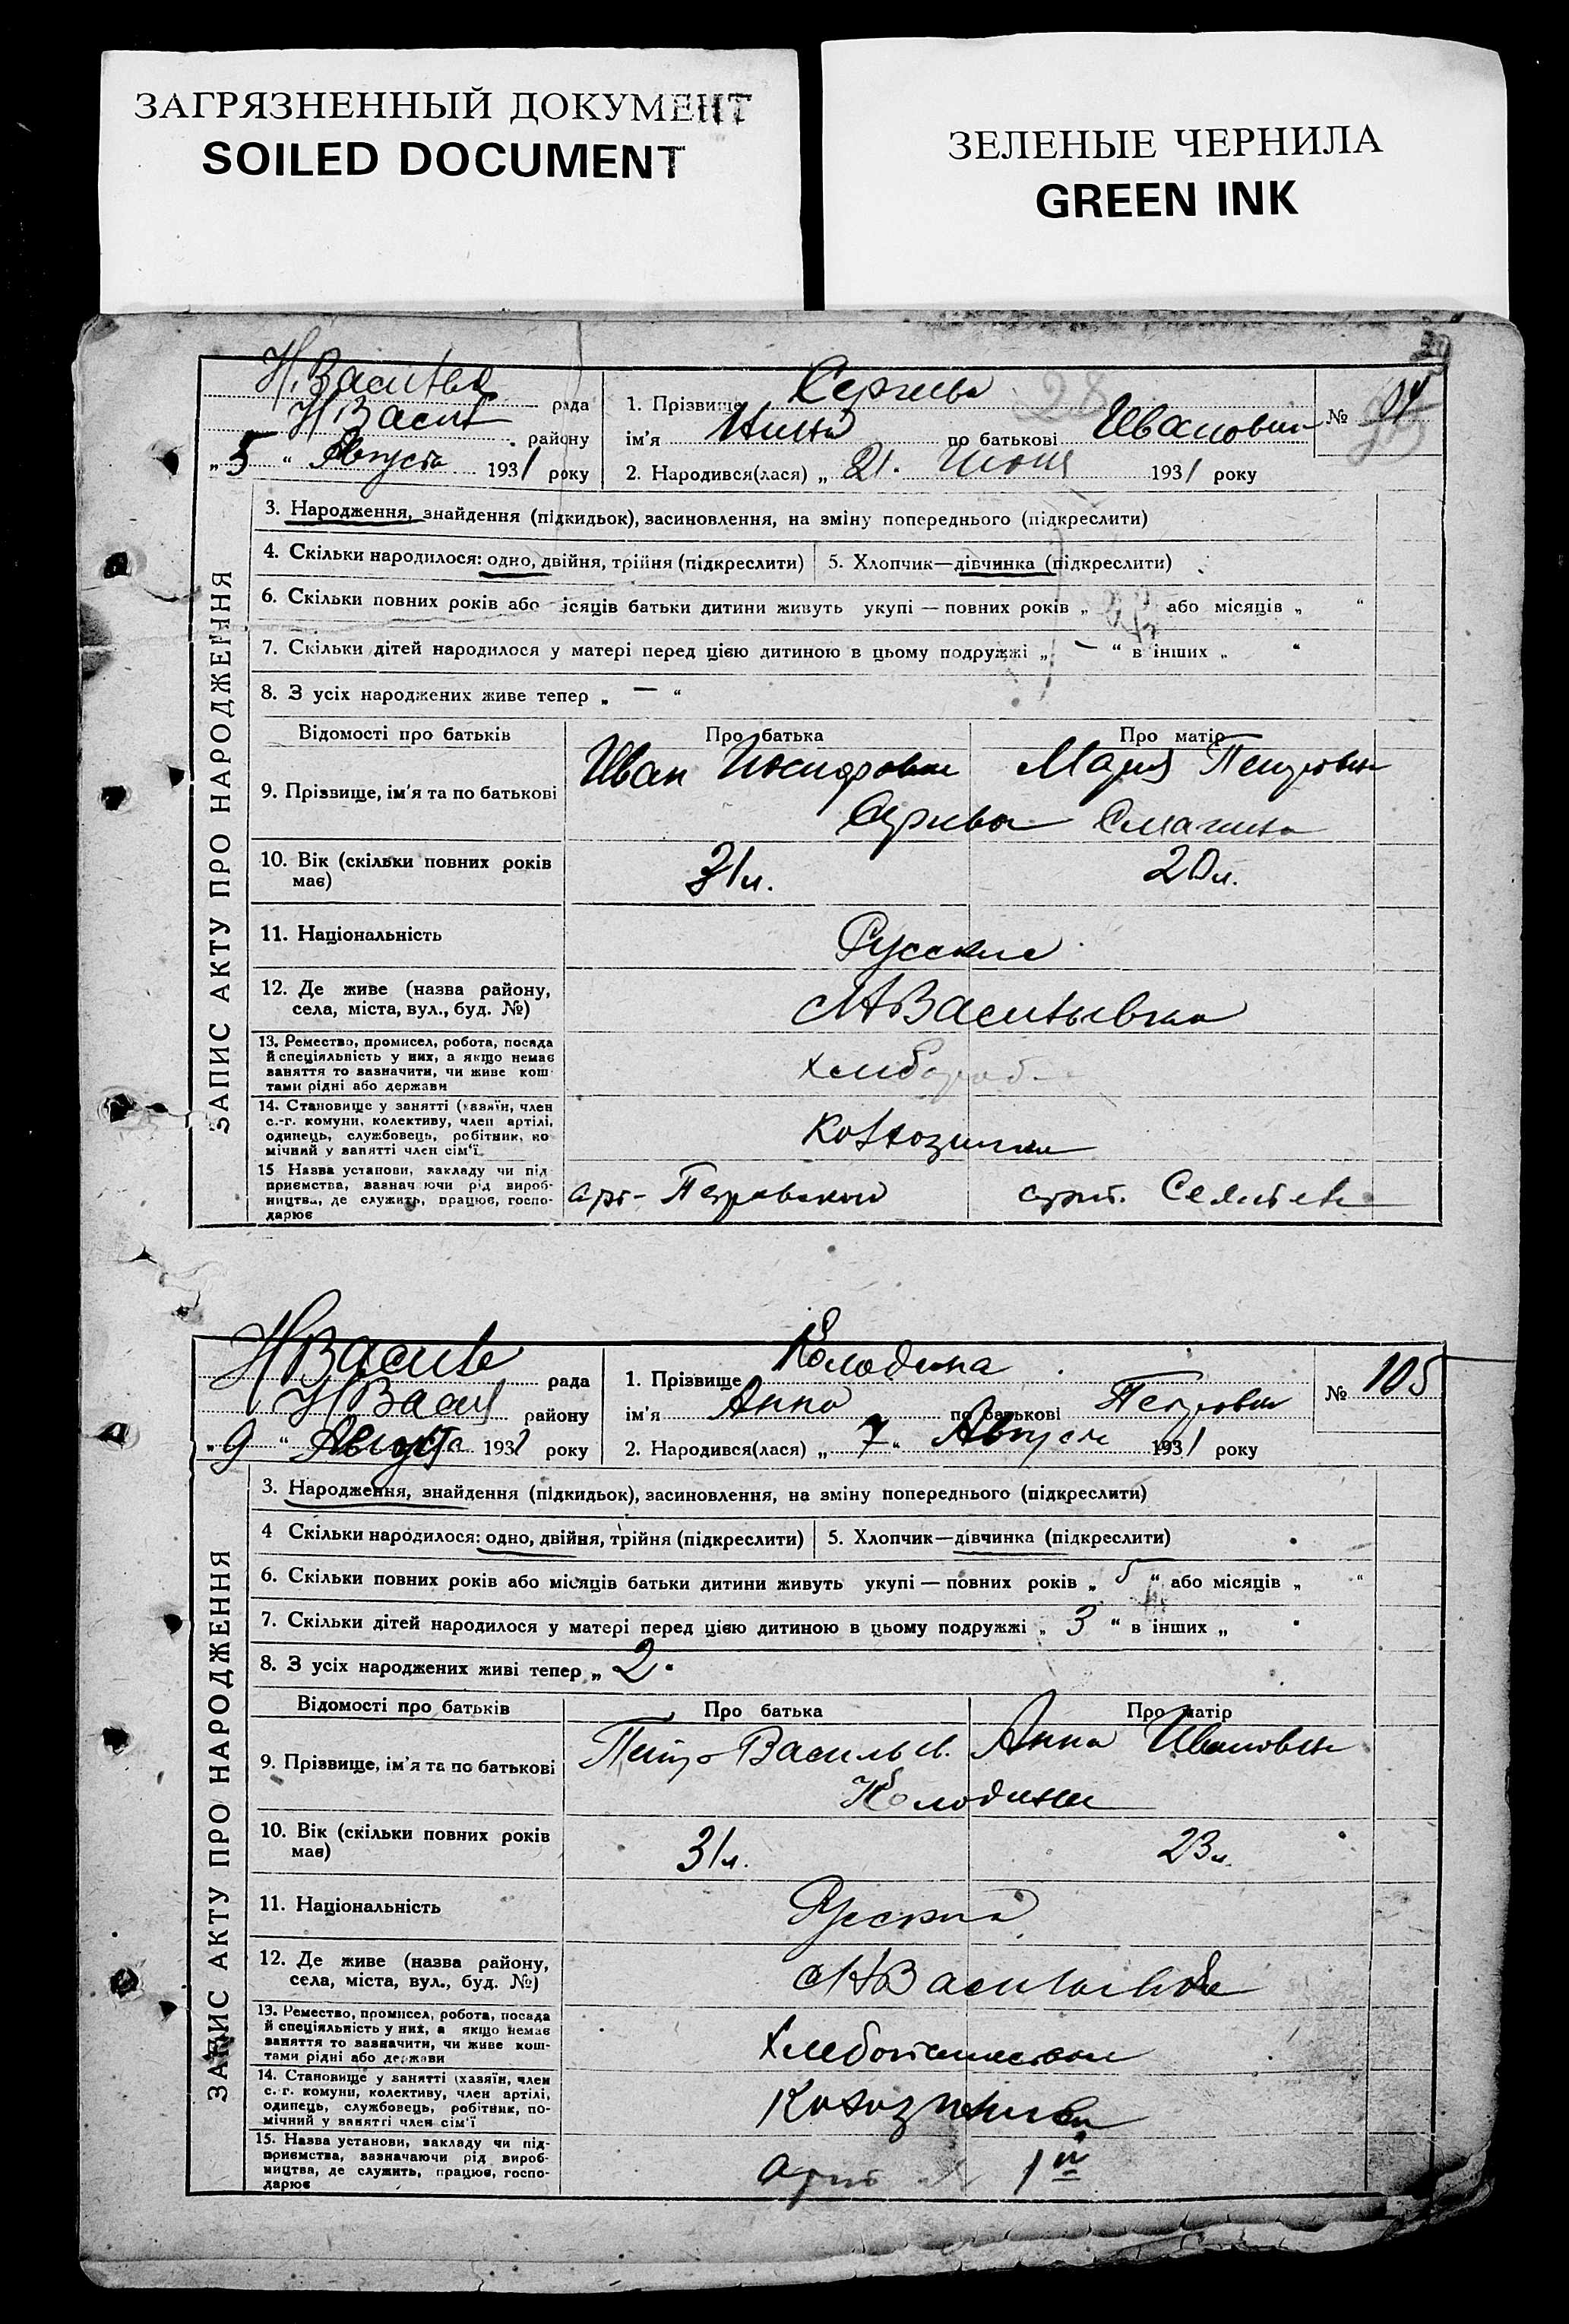 ЗАГРЯЗНЕННЫЙ ДОКУМЕНТ
SOILED DOCUMENT
ЗЕЛЕНЫЕ ЧЕРНИЛА
GREEN INK
29
ЗАПИС АКТУ ПРО НАРОДЖЕННЯ
рада
району
„5“ Августа 1931 року
1. Прізвище
28
ім'я Нина по батькові Ивановна
2. Народився(лася) „21. 1931 року
№
3. Народження, знайдення (підкидьок), засиновлення, на зміну попереднього (підкреслити)
4. Скільки народилося: одно, двійня, трійня (підкреслити)
5. Хлопчик—дівчинка (підкреслити)
6. Скільки повних років або місяців батьки дитини живуть укупі — повних років „ або місяців „ “
7. Скільки дітей народилося у матері перед цією дитиною в цьому подружжі „ — “ в інших „ “
8. З усіх народжених живе тепер „ — “
Відомості про батьків
Про батька
Про матір
9. Прізвище, ім'я та по батькові
Иван Иосифович
Мария Петровна
10. Вік (скільки повних років має)
31 л.
20 л.
11. Національність
Русские
12. Де живе (назва району, села, міста, вул., буд. №)
13. Ремество, промисел, робота, посада й спеціяльність у них, а якщо немає заняття то зазначити, чи живе коштами рідні або держави
14. Становище у занятті (хазяїн, член с.-г. комуни, колективу, член артілі, одинець, службовець, робітник, помічний у занятті член сім'ї
15 Назва установи, закладу чи підприємства, зазначаючи рід виробництва, де служить, працює, господарює
ЗАПИС АКТУ ПРО НАРОДЖЕННЯ
рада
району
„9“ Августа 1931 року
1. Прізвище Колодина
ім'я Анна по батькові Петровна
2. Народився(лася) „7“ Августа 1931 року
№ 105
3. Народження, знайдення (підкидьок), засиновлення, на зміну попереднього (підкреслити)
4 Скільки народилося: одно, двійня, трійня (підкреслити)
5. Хлопчик—дівчинка (підкреслити)
6. Скільки повних років або місяців батьки дитини живуть укупі — повних років „ 5 “ або місяців „ “
7. Скільки дітей народилося у матері перед цією дитиною в цьому подружжі „ 3 “ в інших „ “
8. З усіх народжених живі тепер „ 2 “
Відомості про батьків
Про батька
Про матір
9. Прізвище, ім'я та по батькові
Петр Васильев.
Анна Ивановна
Колодины
10. Вік (скільки повних років має)
31 л.
23 л.
11. Національність
12. Де живе (назва району, села, міста, вул., буд. №)
13. Ремество, промисел, робота, посада й спеціяльність у них, а якщо немає заняття то зазначити, чи живе коштами рідні або держави
14. Становище у занятті (хазяїн, член с.-г. комуни, колективу, член артілі, одинець, службовець, робітник, помічний у занятті член сім'ї
15. Назва установи, закладу чи підприємства, зазначаючи рід виробництва, де служить, працює, господарює